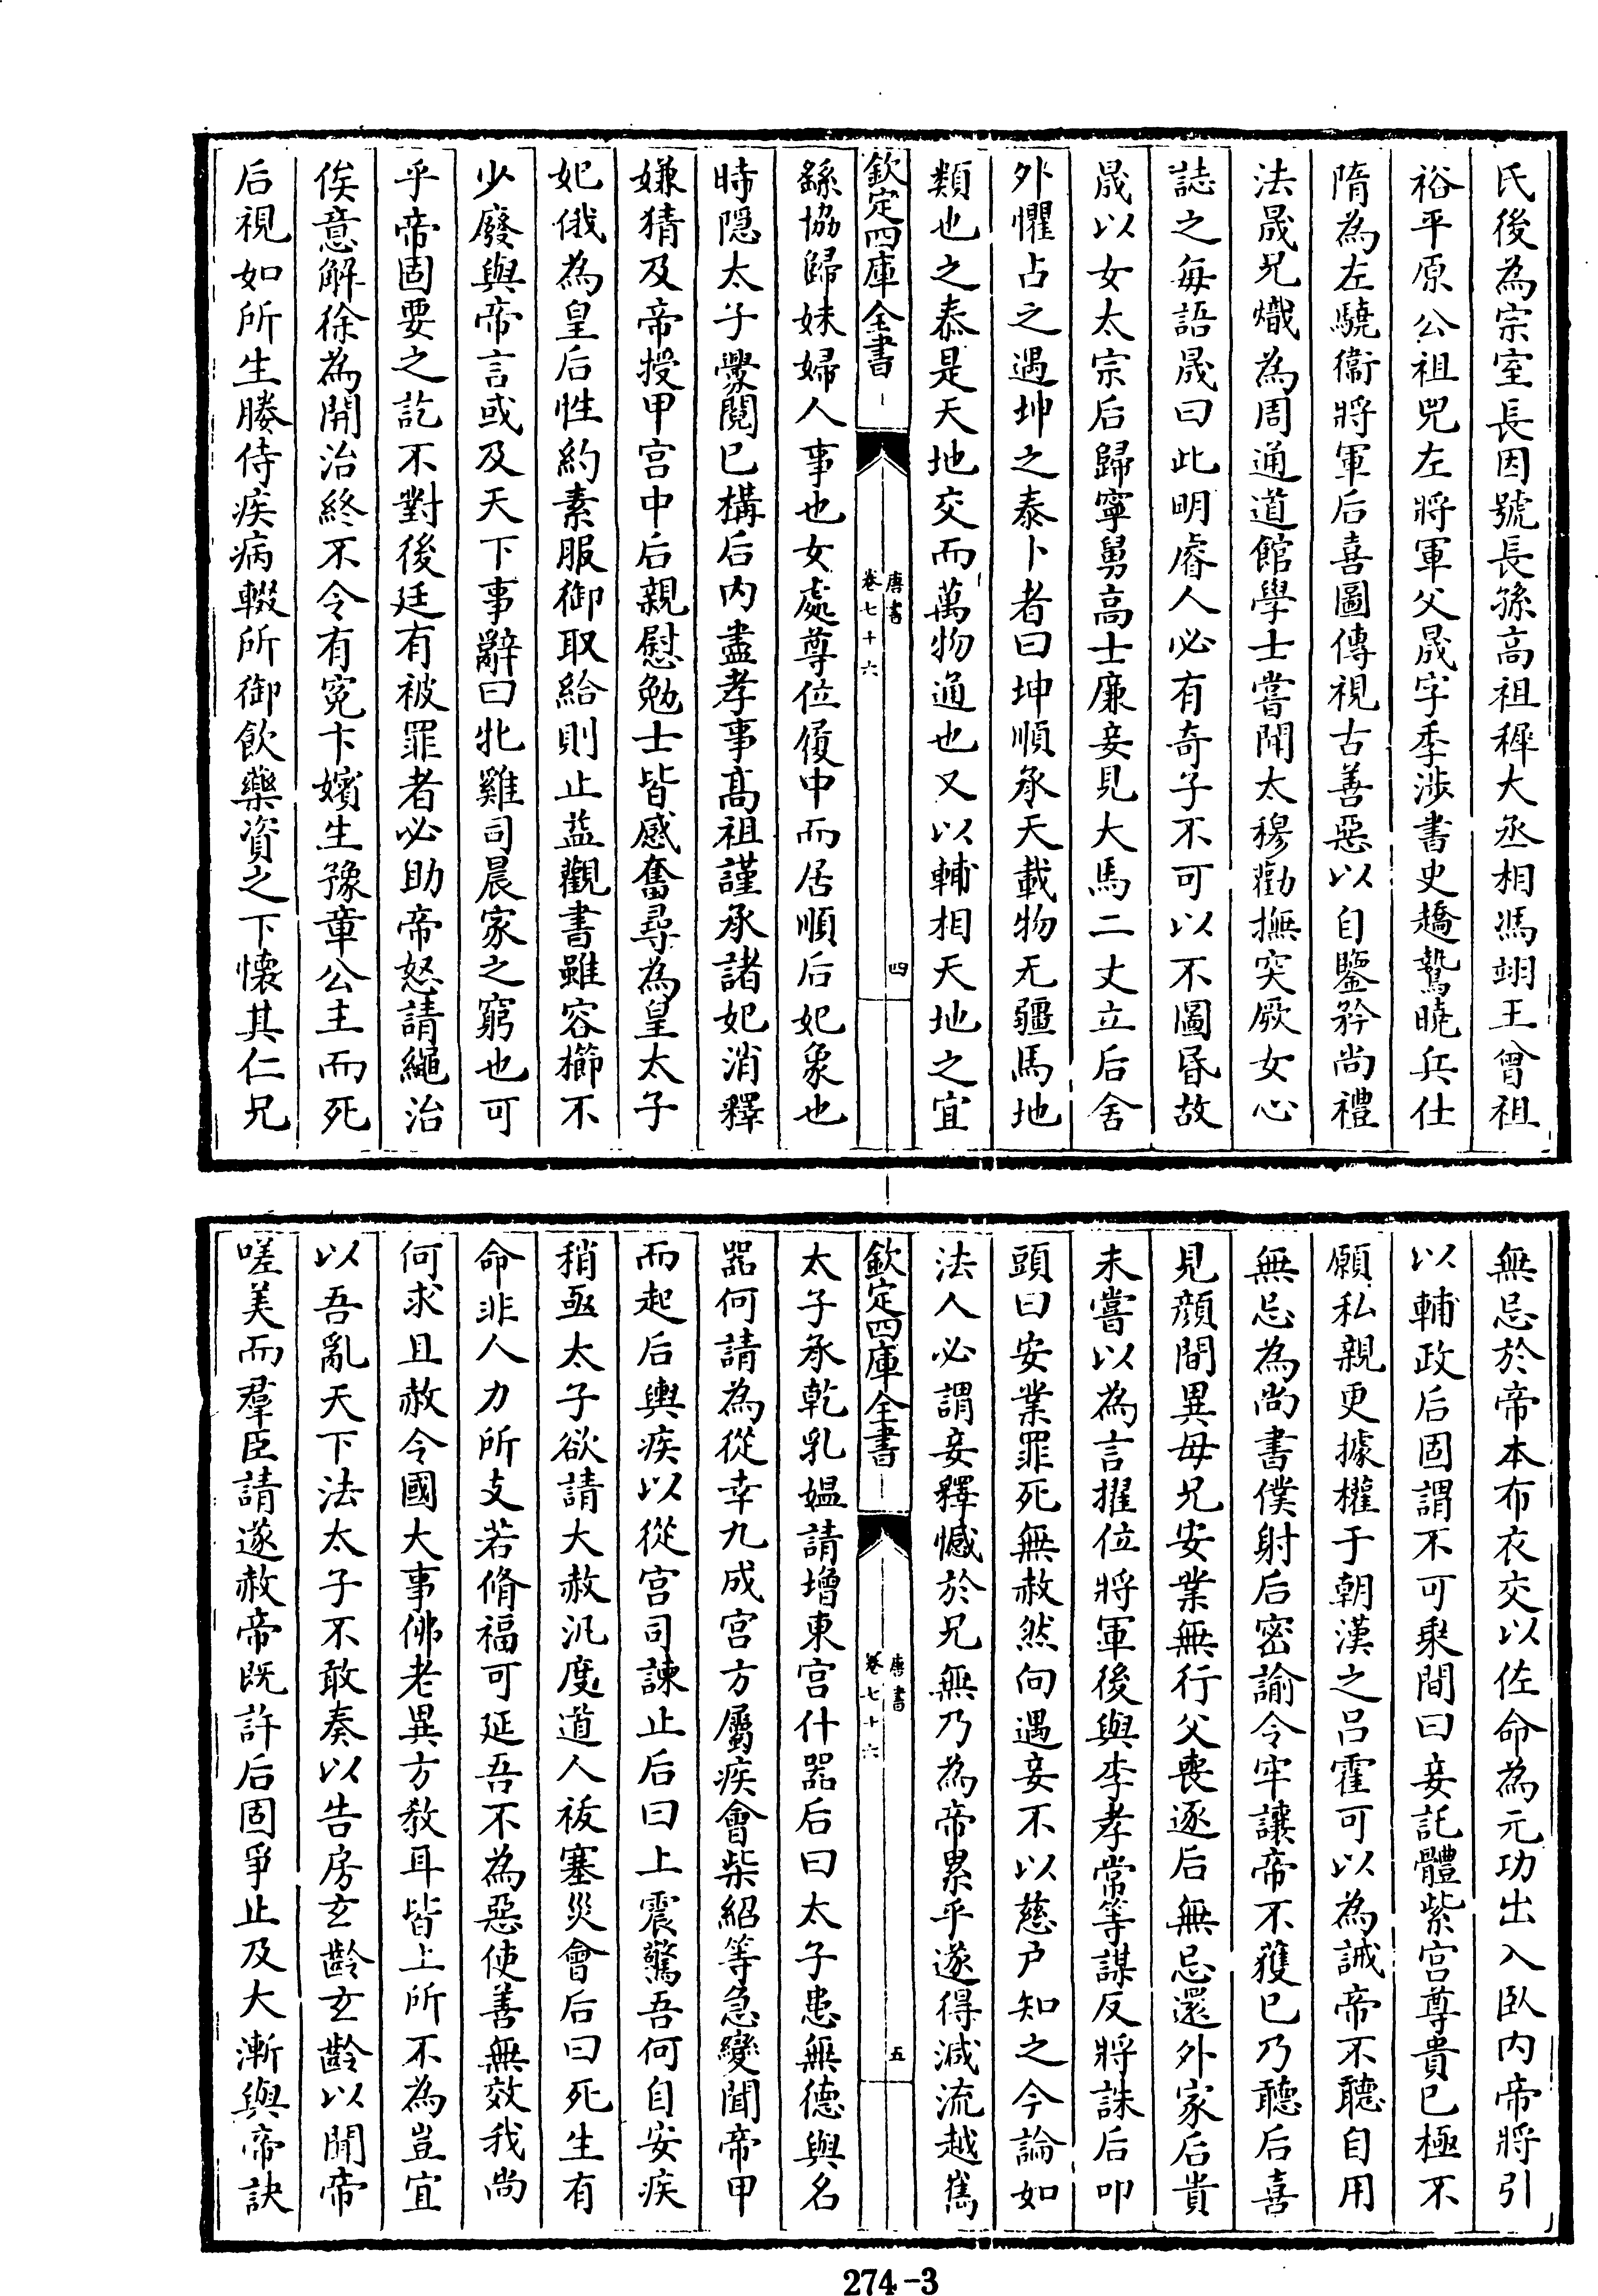 氏後為宗室長因號長孫高祖稺大丞相馮翊王曾祖
裕平原公祖兕左將軍父晟字季涉書史趫鷙曉兵仕
隋為左驍衞將軍后喜圖傳視古善惡以自鑒矜尚禮
法晟兄熾為周通道館學士嘗聞太穆勸撫突厥女心
誌之每語晟曰此明睿人必有奇子不可以不圖昏故
晟以女太宗后歸寧舅高士廉妾見大馬二丈立后舍
外懼占之遇坤之泰卜者曰坤順承天載物无疆馬地
類也之泰是天地交而萬物通也又以輔相天地之宜
欽定四庫全書
唐書
卷七十六
四
繇協歸妹婦人事也女處尊位履中而居順后妃象也
時隱太子釁鬩已構后内盡孝事髙祖謹承諸妃消釋
嫌猜及帝授甲宫中后親慰勉士皆感奮尋為皇太子
妃俄為皇后性約素服御取給則止益觀書雖容櫛不
少廢與帝言或及天下事辭曰牝雞司晨家之窮也可
乎帝固要之訖不對後廷有被罪者必助帝怒請繩治
俟意解徐為開治終不令有寃下嬪生豫章公主而死
后視如所生媵侍疾病輟所御飲藥資之下懷其仁兄
無忌於帝本布衣交以佐命為元功出入臥内帝將引
以輔政后固謂不可乘間曰妾託體紫宫尊貴已極不
願私親更據權于朝漢之吕霍可以為誡帝不聽自用
無忌為尚書僕射后密諭令牢讓帝不獲已乃聽后喜
見顔間異母兄安業無行父喪逐后無忌還外家后貴
未嘗以為言擢位將軍後與李孝常等謀反將誅后叩
頭曰安業罪死無赦然向遇妾不以慈户知之今論如
法人必謂妾釋憾於兄無乃為帝累乎遂得減流越嶲
欽定四庫全書
唐書
卷七十六
五
太子承乾乳媪請增東宫什器后曰太子患無德與名
器何請為從幸九成宫方屬疾會柴紹等急變聞帝甲
而起后輿疾以從宫司諫止后曰上震驚吾何自安疾
稍亟太子欲請大赦汎度道人祓塞災會后曰死生有
命非人力所支若脩福可延吾不為惡使善無效我尚
何求且赦令國大事佛老異方教耳皆上所不為豈宜
以吾亂天下法太子不敢奏以告房玄齡玄齡以聞帝
嗟美而羣臣請遂赦帝既許后固爭止及大漸與帝訣
274-3